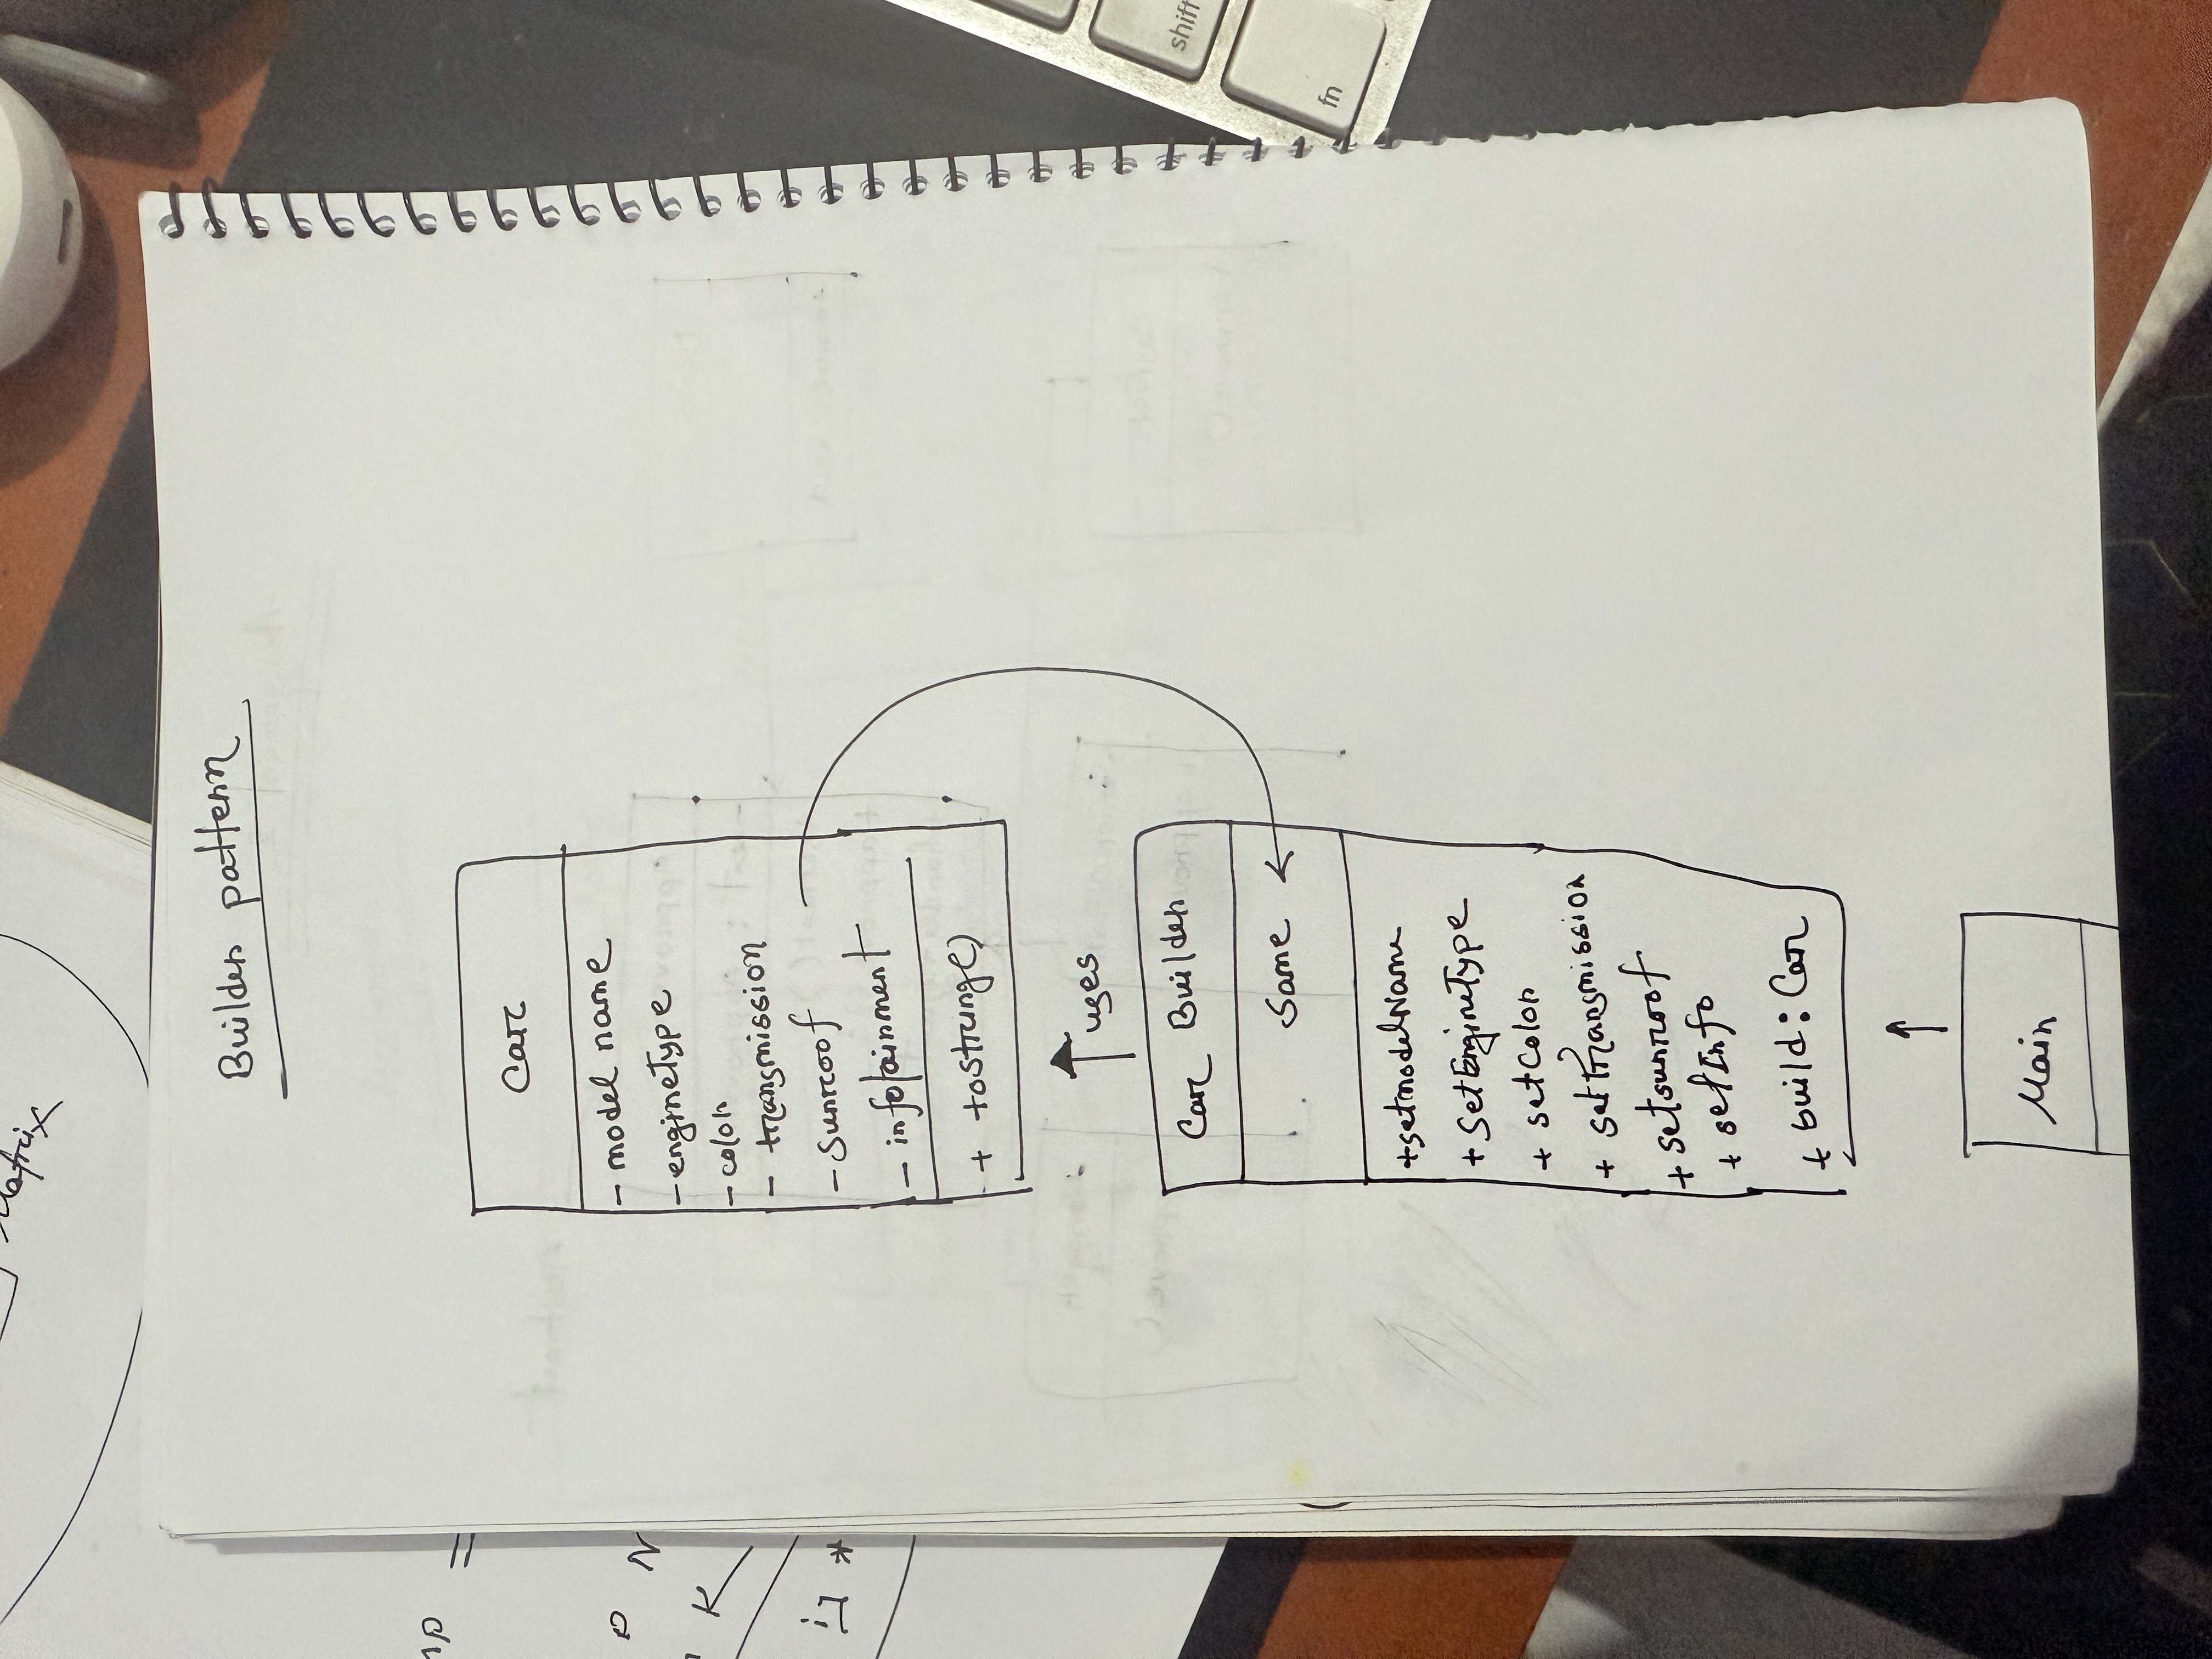 Matrix
Builder pattern
Car
- model name
- engineType
- color
- transmission
- Sunroof
- infotainment
+ toString()
uses
Car Builder
Same
+setmodelName
+ SetEngineType
+ setColor
+ setTransmission
+ setsunroof
+ setInfo
+ build: Car
Main
shift
fn